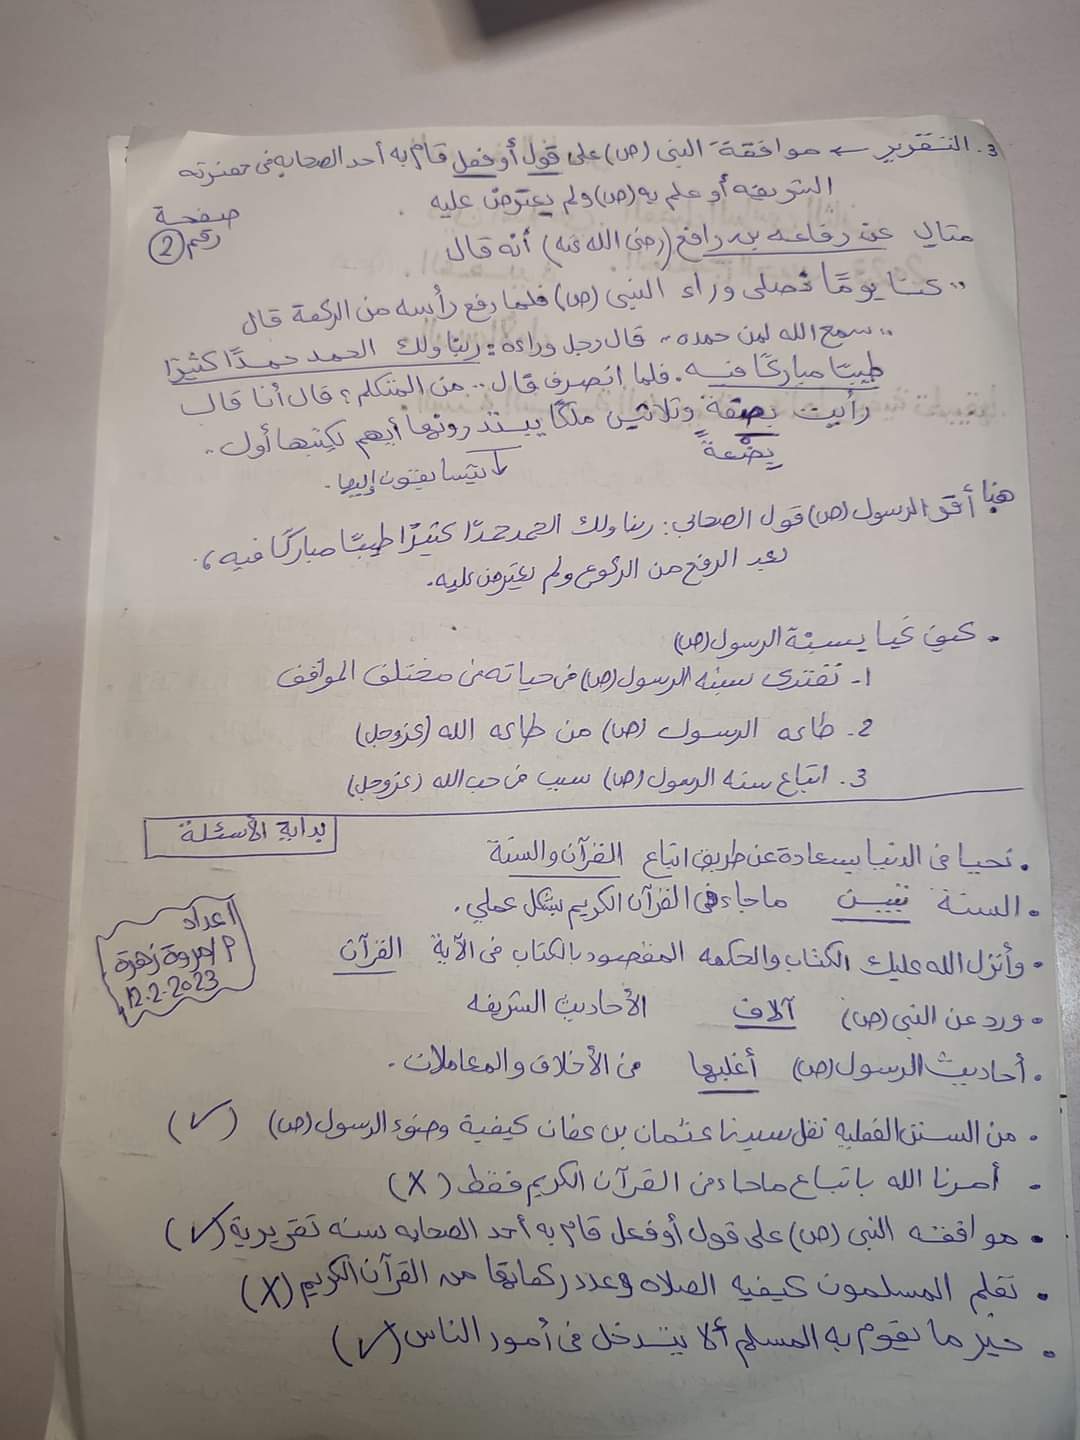 3. التقرير ← موافقة النبى (ص) على قول أو فعل قام به أحد الصحابه فى حضرته
الشريفه أو علم به (ص) ولم يعترض عليه
صفحة
رقم (2)
مثال عن رفاعه بن رافع (رضى الله عنه) أنه قال
"كنا يومًا نصلى وراء النبى (ص) فلما رفع رأسه من الركعة قال
"سمع الله لمن حمده" قال رجل وراءه: ربنا ولك الحمد حمدًا كثيرًا
طيبًا مباركًا فيه. فلما انصرف قال .. من المتكلم؟ قال أنا قال
رأيت بضعة وثلاثين ملكًا يبتدرونها أيهم يكتبها أول"
بِضْعةً
يتسابقون إليها.
هنا أقر الرسول (ص) قول الصحابى: ربنا ولك الحمد حمدًا كثيرًا طيبًا مباركًا فيه،
بعد الرفع من الركوع ولم يعترض عليه.
. كيف نحيا بسنة الرسول (ص)
1- نقتدى سنه الرسول (ص) فى حياته فى مختلف المواقف
2. طاعه الرسول (ص) من طاعه الله (عزوجل)
3. اتباع سنه الرسول (ص) سبب فى حب الله (عزوجل)
بداية الأسئلة
. نحيا فى الدنيا بسعادة عن طريق اتباع القرآن والسنة
. السنة تبين ماجاء فى القرآن الكريم بشكل عملي.
. وأنزل الله عليك الكتاب والحكمه المقصود بالكتاب فى الآية القرآن
اعداد
م/مروة زهرة
12.2.2023
. ورد عن النبى (ص) آلاف الأحاديث الشريفه
. أحاديث الرسول (ص) أغلبها فى الأخلاق والمعاملات.
. من السنن الفعليه نقل سيدنا عثمان بن عفان كيفية وضوء الرسول (ص) (✓)
. أمرنا الله باتباع ماجاء فى القرآن الكريم فقط (X)
. موافقه النبى (ص) على قول أو فعل قام به أحد الصحابه سنه تقريرية (✓)
. تعلم المسلمون كيفيه الصلاه وعدد ركعاتها من القرآن الكريم (X)
. خير ما يقوم به المسلم ألا يتدخل فى أمور الناس (✓)